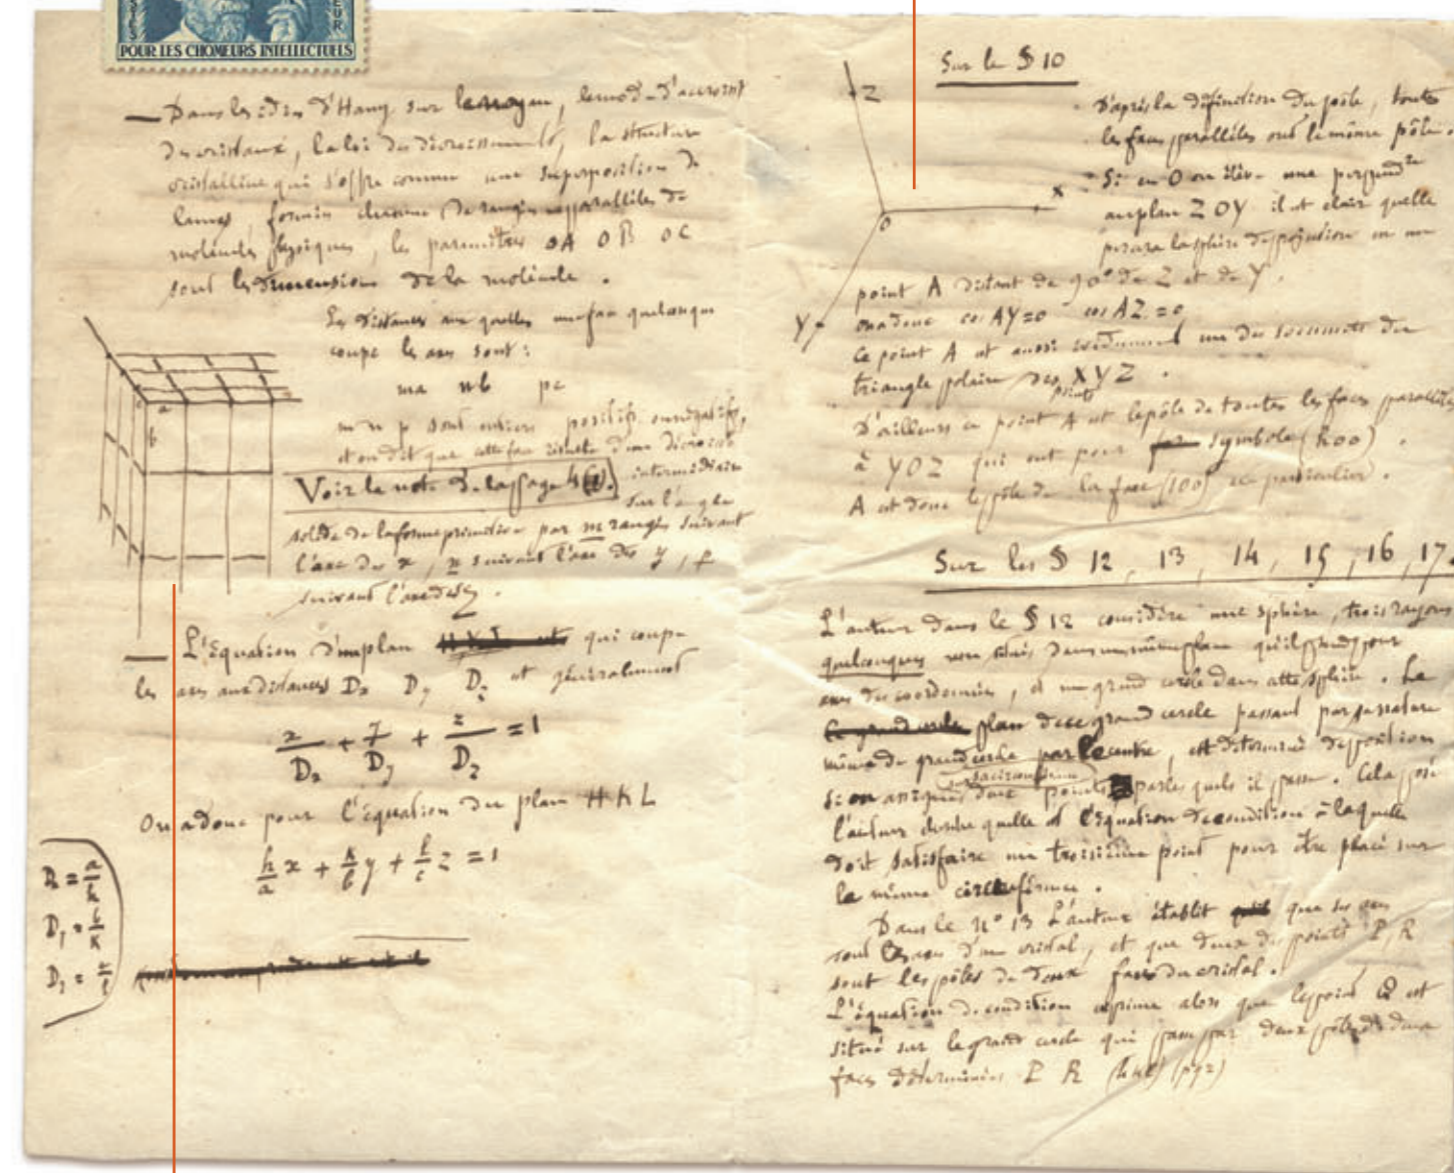 POUR LES CHOMEURS INTELLECTUELS
EUR
— Dans les idées d'Hauy sur le noyau, le mode d'accroist
des cristaux, la loi des décroissements, la structure
cristalline qui s'offre comme une superposition de
lames, formées chacune de rangées parallèles de
molécules physiques, les paramètres OA OB OC
sont les dimensions de la molécule.
Les distances aux quelles une face quelconque
coupe les axes sont :
ma nb pc
m n p sont entiers positifs ou négatifs,
et on dit que cette face résulte d'un décrois
Voir la note de la page 4 intermédiaire
sur l'angle
solide de la forme primitive par m rangées suivant
l'axe des x, n suivant l'axe des y, p
suivant l'axe des z.
a
b
— L'équation d'un plan HKL est qui coupe
les axes aux distances Dx Dy Dz est généralement
x/Dx + y/Dy + z/Dz = 1
On a donc pour l'équation du plan HKL
h/a x + k/b y + l/c z = 1
D = a/h
D = b/k
D = c/l
Sur le § 10
Z
X
O
Y
D'après la définition du pôle, toutes
les faces parallèles ont le même pôle.
Si en O on élève une perpendre
au plan ZOY il est clair quelle
percera la sphère de projection en un
point A distant de 90° de Z et de Y.
on a donc cos AY=0 cos AZ=0
Ce point A est aussi évidemment un des sommets du
triangle polaire des points XYZ.
D'ailleurs ce point A est le pôle de toutes les faces parallèles
à YOZ qui ont pour symbole (h00).
A est donc le pôle de la face (100) en particulier.
Sur les § 12, 13, 14, 15, 16, 17.
L'auteur dans le § 12 considère une sphère, trois rayons
quelconques non situés dans un même plan qu'il prend pour
axes des coordonnées, et un grand cercle dans cette sphère. Le
Ce grand cercle plan de ce grand cercle passant par sa nature
même de grand cercle par le centre, est déterminé de position
si on assigne deux points par les quels il passe. Cela posé
l'auteur cherche quelle est l'équation de condition à laquelle
doit satisfaire un troisième point pour être placé sur
la même circonférence.
Dans le n° 13 L'auteur établit que ses axes
sont les axes d'un cristal, et que deux des points P, R
sont les pôles de deux faces du cristal.
L'équation de condition exprime alors que le point Q est
situé sur le grand cercle qui passe par deux pôles de deux
faces déterminées P R (hkl) (pqr)